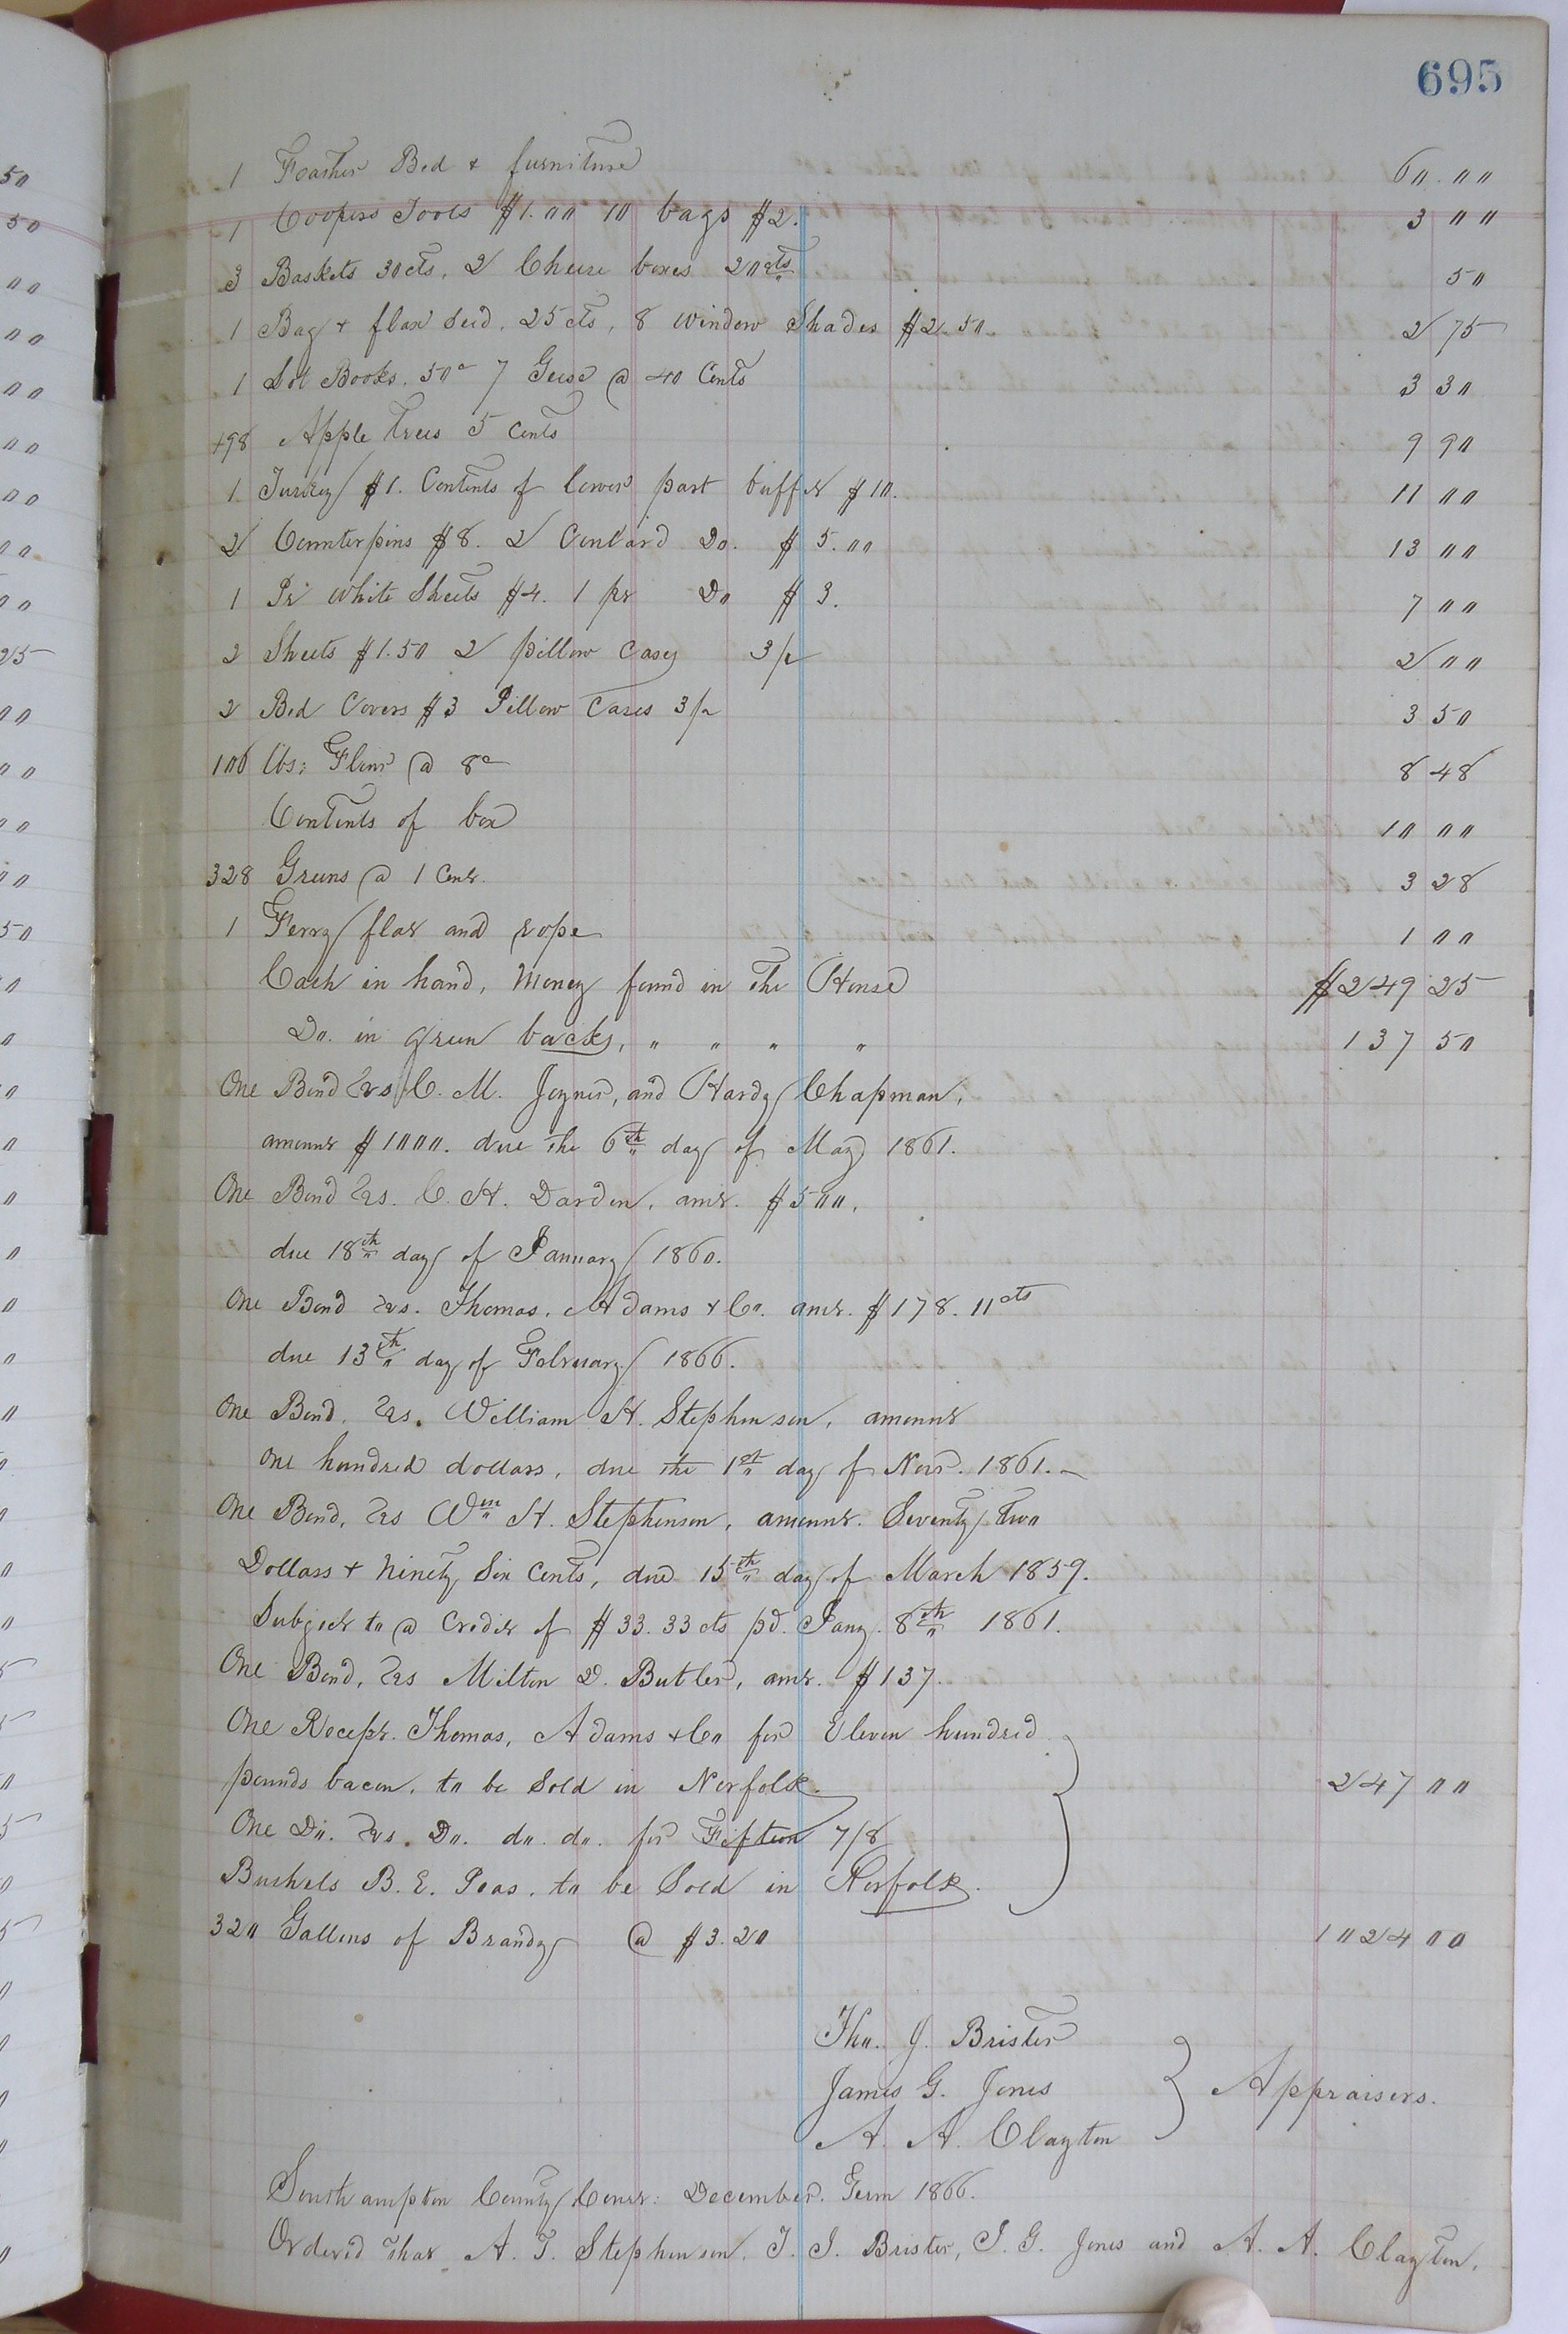 695
1 Feather Bed & furniture 60.00
1 Coopers Tools $1.00 10 bags $2. 3 00
3 Baskets 30cts, 2 Cheese boxes 20cts 50
1 Bag & flax seed, 25 cts, 8 window Shades $2.50 2 75
1 Lot Books. 50c 7 Geese @ 40 Cents 3 30
198 Apple Trees 5 Cents 9 90
1 Turkey $1. Contents of lower part buffet $10. 11 00
2 Counterpins $8. 2 Do. $5.00 13 00
1 Pr White Sheets $4. 1 pr Do $3. 7 00
2 Sheets $1.50 2 pillow Cases 3/ 2 00
2 Bed Covers $3 Pillow Cases 3/ 3 50
106 lbs: Flour @ 8c 8 48
Contents of box 10 00
328 Greens @ 1 Cent. 3 28
1 Ferry flat and rope 1 00
Cash in hand, Money found in the House $249 25
Do. in green backs, " " " " 137 50
One Bond vs C. M. Joyner, and Hardy Chapman,
amount $1000. due the 6th day of May 1861.
One Bond vs. C. H. Darden, amt. $500,
due 18th day of January 1860.
One Bond vs. Thomas, Adams & Co. amt. $178.11cts
due 13th day of February 1866.
One Bond. vs. William H. Stephenson, amount
one hundred dollars, due the 1st day of Novr. 1861.
One Bond, vs Wm H. Stephenson, amount. Seventy two
Dollars & Ninety Six Cents, due 15th day of March 1859.
Subject to a Credit of $33.33cts pd. Jany. 8th 1861.
One Bond, vs Milton D. Butler, amt. $137.
One Recept. Thomas, Adams & Co for Eleven hundred
pounds bacon, to be Sold in Norfolk. 247 00
One Do. vs. Do. do. do. for Fifteen 7/8
Bushels B. E. Peas, to be Sold in Norfolk.
320 Gallons of Brandy @ $3.20 1024 00
Tho. J. Brister
James G. Jones } Appraisers.
A. A. Clayton
Southampton County Court: December. Term 1866.
Ordered that A. T. Stephenson, T. J. Brister, J. G. Jones and A. A. Clayton,